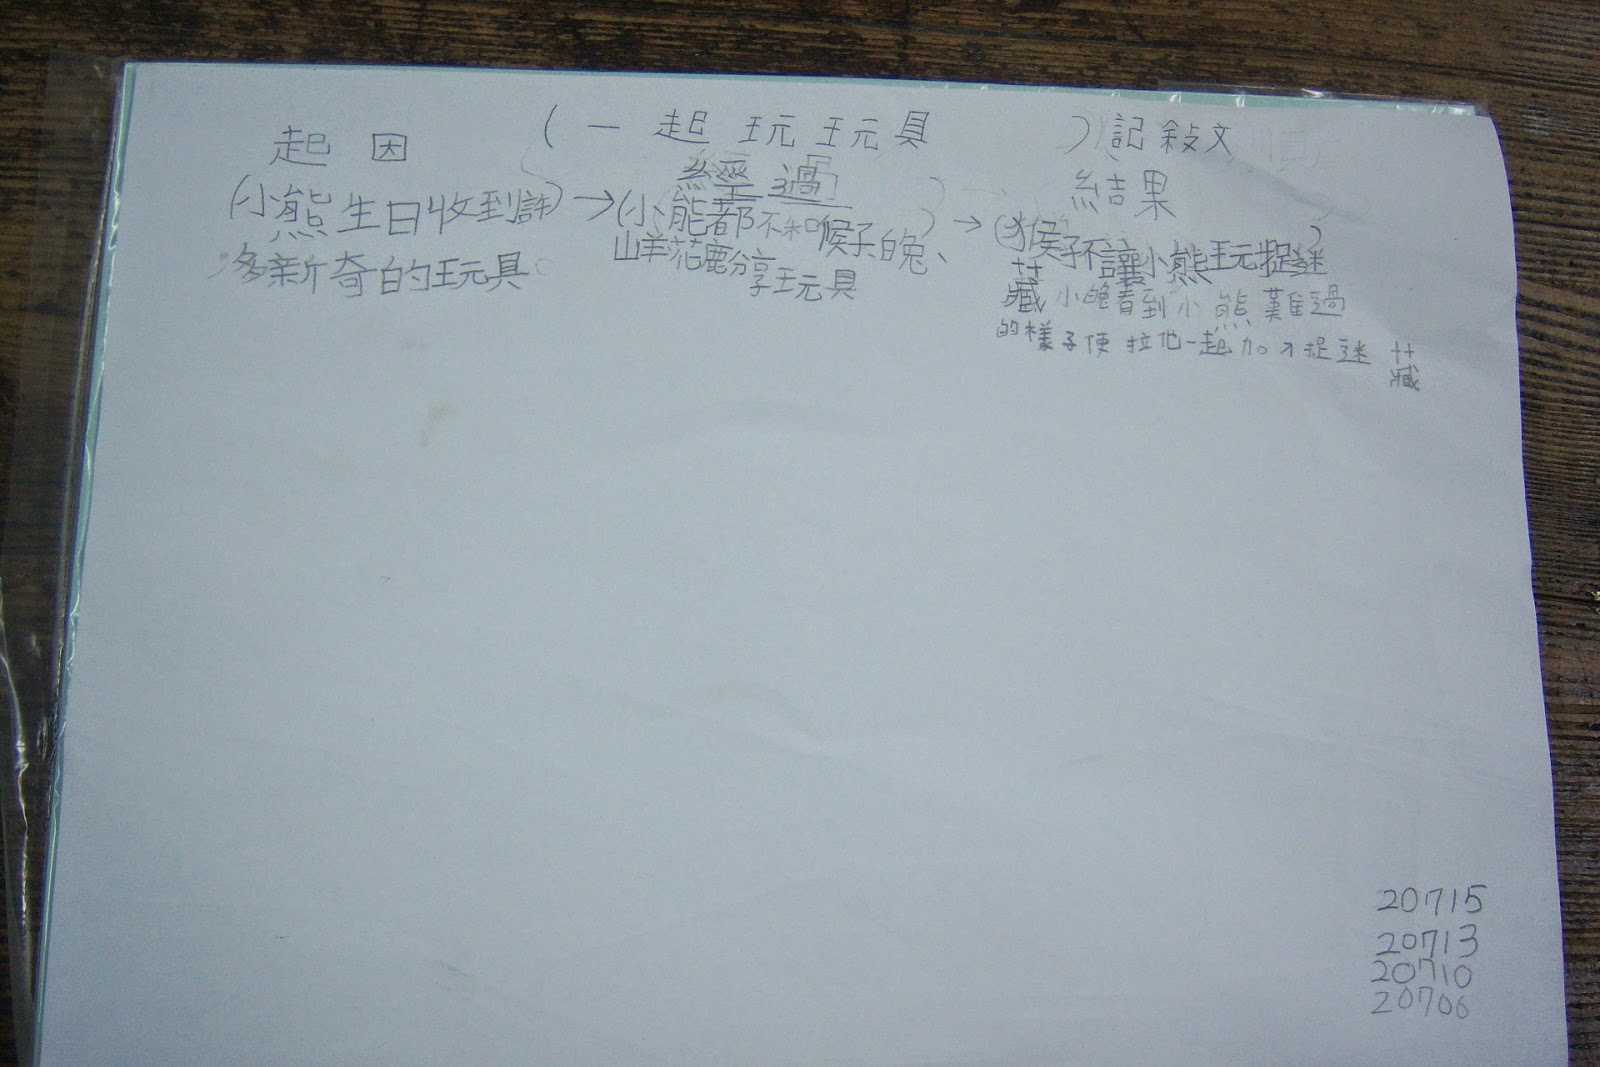 (一起玩玩具)記敘文
起因
(小熊生日收到許)→
多新奇的玩具
經過
(小熊都不和猴子白兔、)→
山羊花鹿分享玩具
結果
(猴子不讓小熊玩捉迷)
藏小兔看到小熊難過
的樣子便拉他一起加才捉迷藏
20715
20713
20710
20706